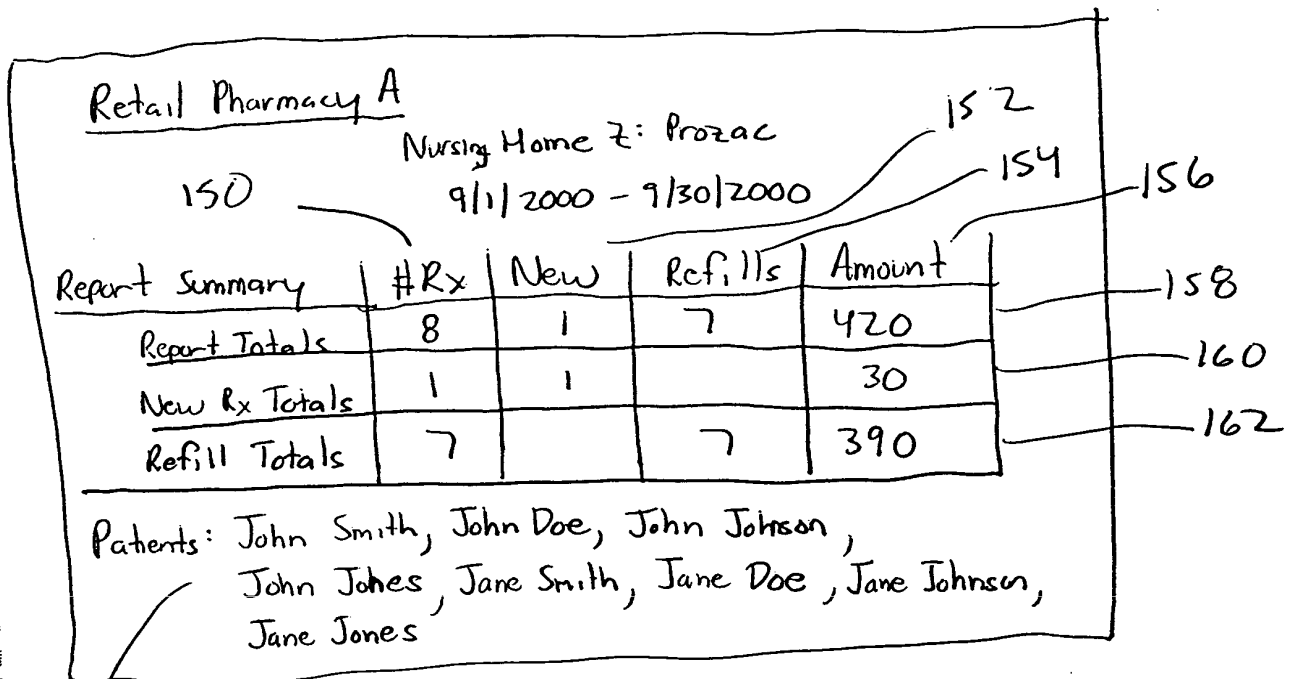 Retail Pharmacy A
152
Nursing Home Z: Prozac
154
150
9/1/2000 - 9/30/2000
156
Report Summary #Rx New Refills Amount
158
Report Totals 8 1 7 420
160
New Rx Totals 1 1 30
162
Refill Totals 7 7 390
Patients: John Smith, John Doe, John Johnson,
John Jones, Jane Smith, Jane Doe, Jane Johnson,
Jane Jones